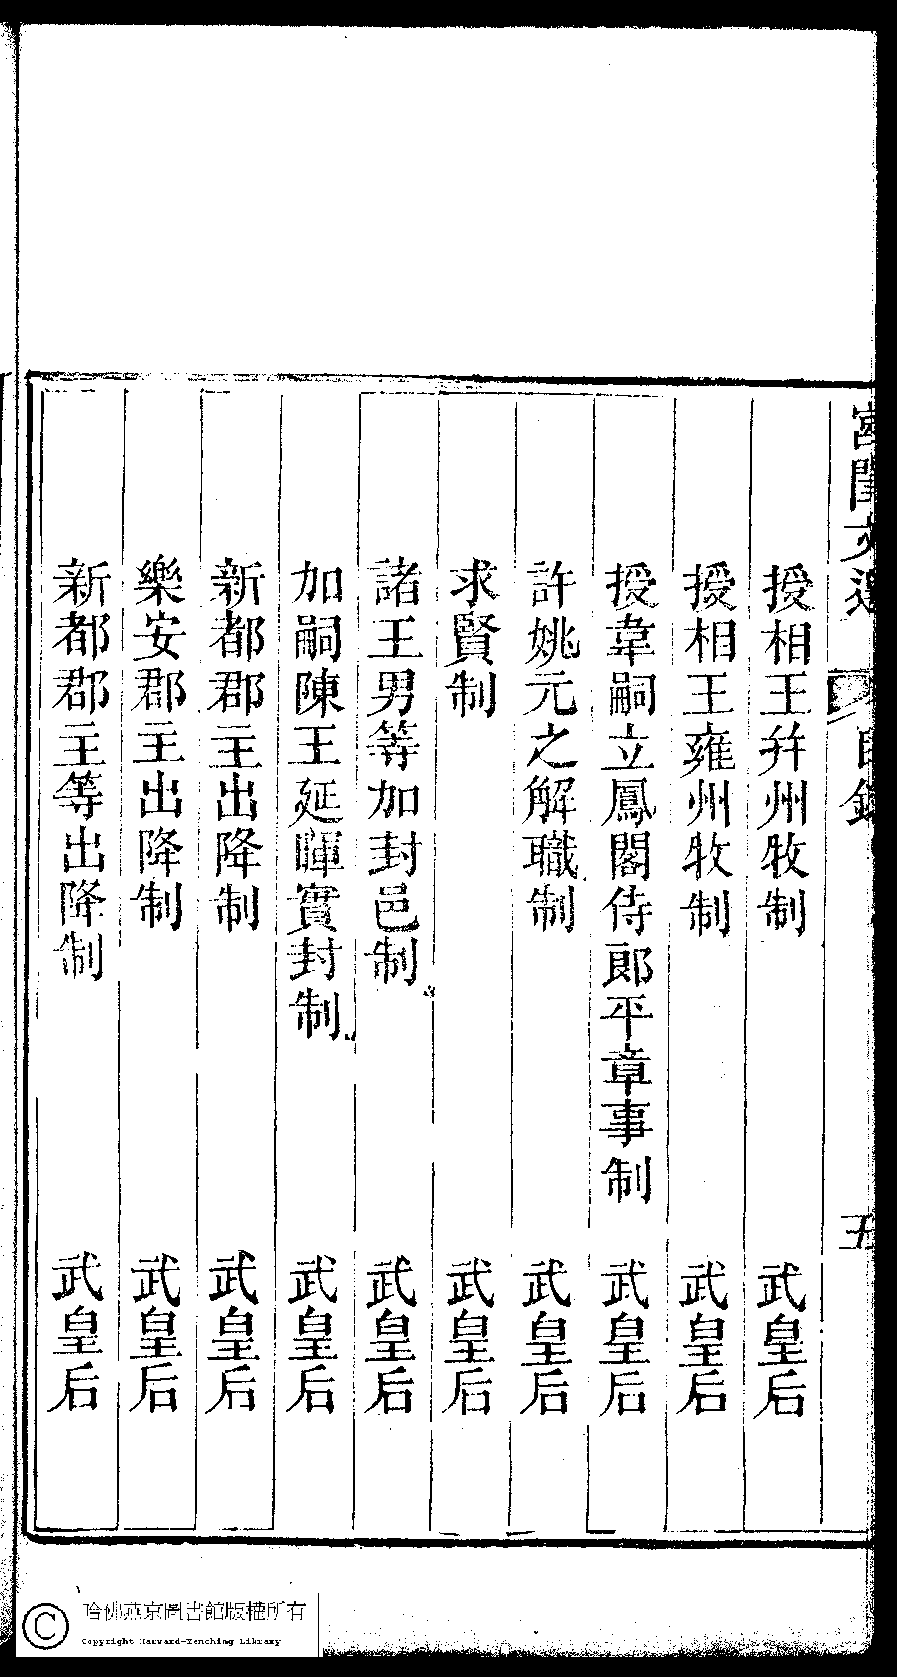 宮閨文選 目錄 五
授相王幷州牧制 武皇后
授相王雍州牧制 武皇后
授韋嗣立鳳閣侍郎平章事制 武皇后
許姚元之解職制 武皇后
求賢制 武皇后
諸王男等加封邑制 武皇后
加嗣陳王延暉實封制 武皇后
新都郡主出降制 武皇后
樂安郡主出降制 武皇后
新都郡主等出降制 武皇后
哈佛燕京圖書館版權所有
Copyright Harvard-Yenching Library